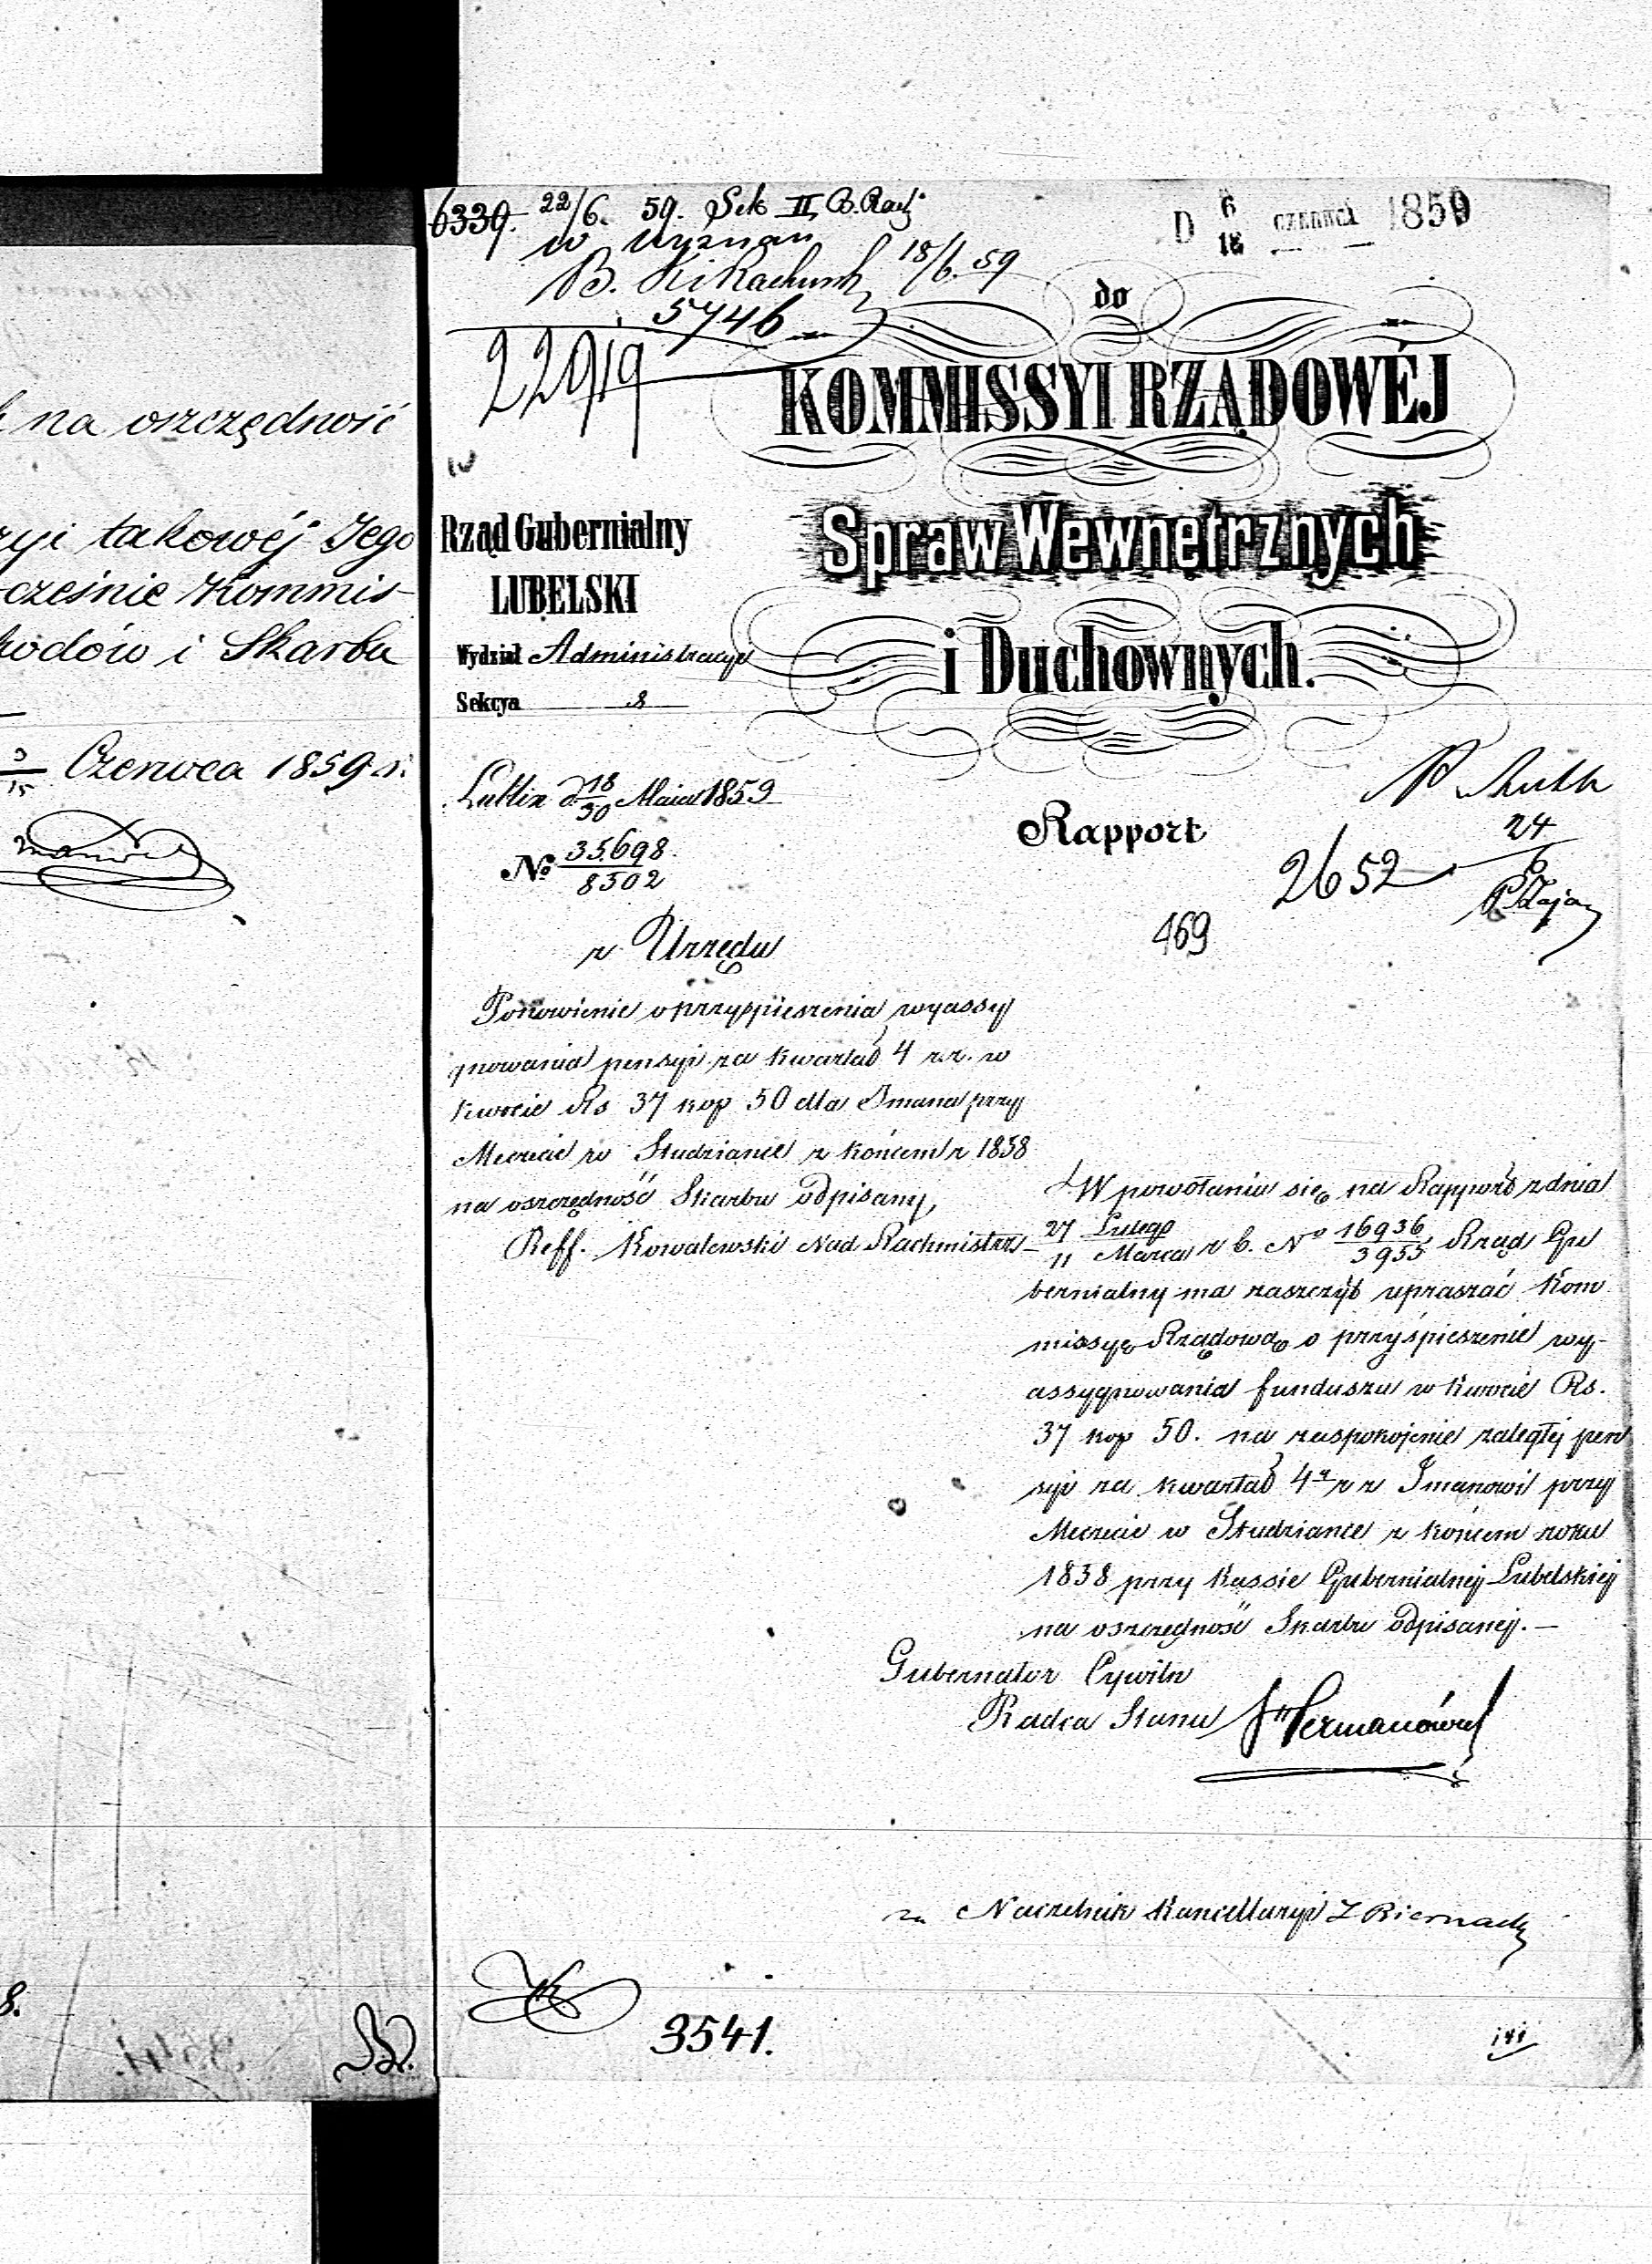 k na oszczędność
ryi takowéj Jego
cześnie Kommis-
hodów i Skarbu
3/15 Czerwca 1859 r.
8.
6339. 22/6. 59. Sek II, B. Rach
w Wyznań
18/6. 59
5746
22919
D 6/18 czerwca 1859
do
KOMMISSYI RZĄDOWÉJ
Spraw Wewnętrznych
i Duchownych.
Rząd Gubernialny
LUBELSKI
Wydział Administracyi
Sekcya 8
Lublin d 18/30 Maia 1859
No 35698/8502
Rapport
2652
24/6
469
z Urzędu
Ponowienie o przyspieszenia wyassy
gnowania pensyi za kwartał 4 r.z. w
kwocie Rs 37 kop 50 dla Imana przy
Meczecie w Studziance z końcem r 1858
na oszczędność Skarbu odpisany,
Reff. Kowalewski Nad Rachmistrz
W powołaniu się na Rapport z dnia
27 Lutego/11 Marca r b. No 16936/3955 Rząd Gu
bernialny ma zaszczyt upraszać Kom
missyę Rządową o przyśpieszenie wy-
assygnowania funduszu w kwocie Rs.
37 kop 50. na zaspokojenie zaległéj pen
syi za kwartał 4ty r z Imanowi przy
Meczecie w Studziance z końcem roku
1858 przy Kassie Gubernialnéj Lubelskiéj
na oszczędność Skarbu odpisanéj. —
Gubernator Cywiln
Radca Stanu
za Naczelnik Kancellaryi Z Biernacki
3541.